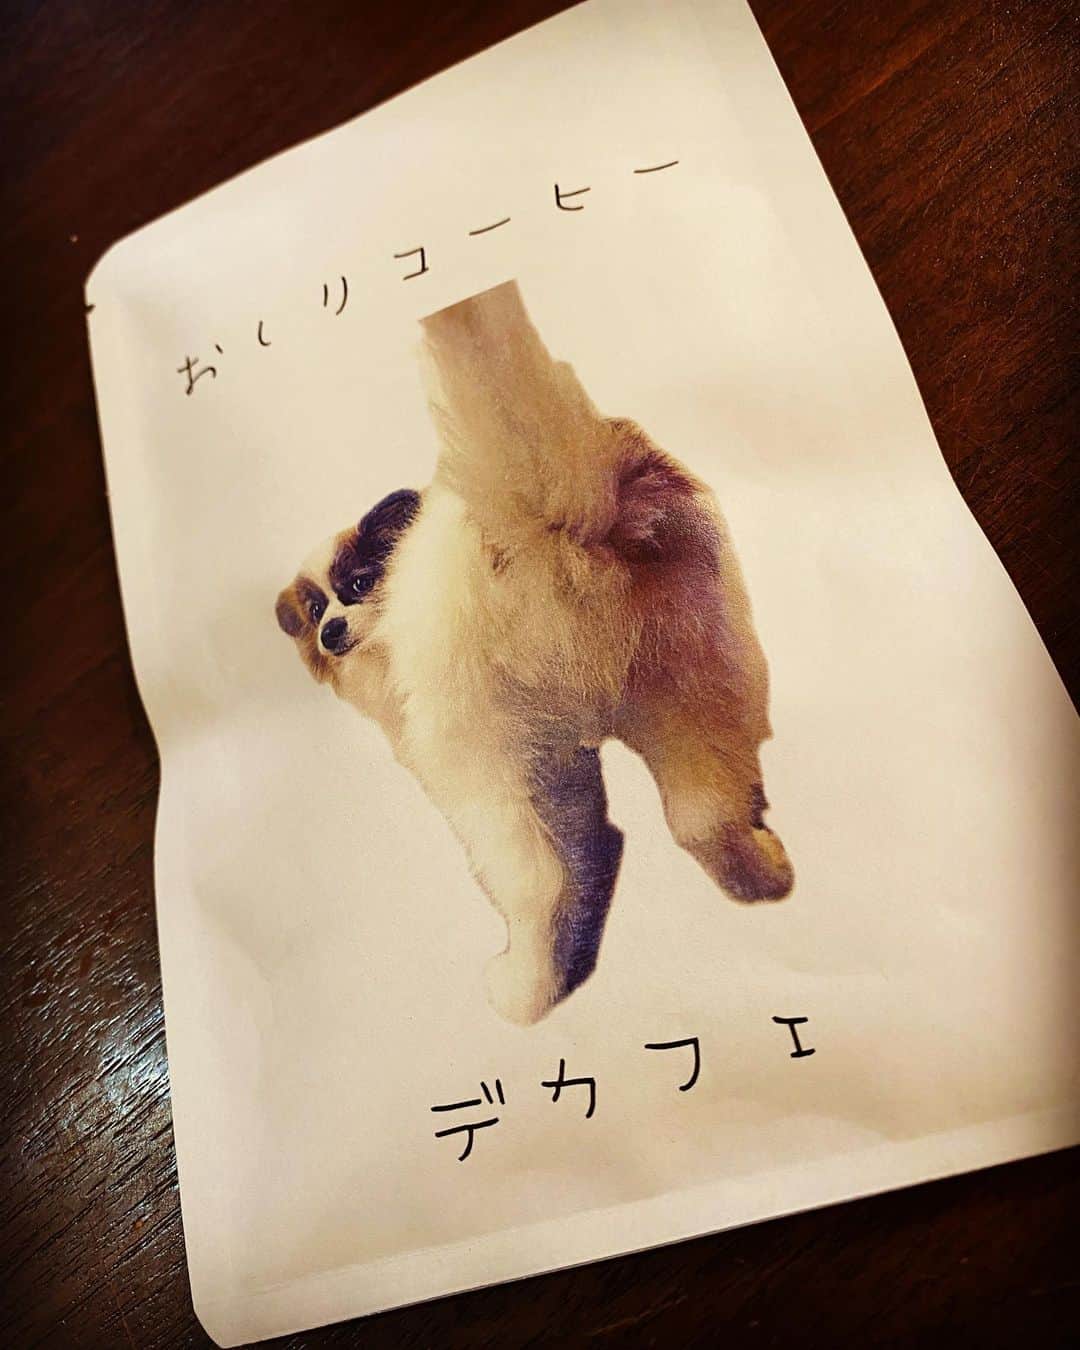 おしりコーヒー
デカフェ